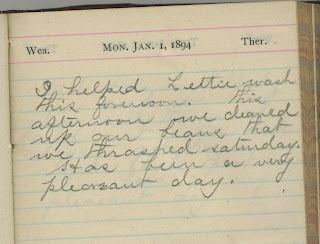 Wea. MON. JAN. 1, 1894 Ther.
I helped Lettie wash
this forenoon. this
afternoon we cleaned
up our beans that
we thrasped saturday.
Has been a very
pleasant day.